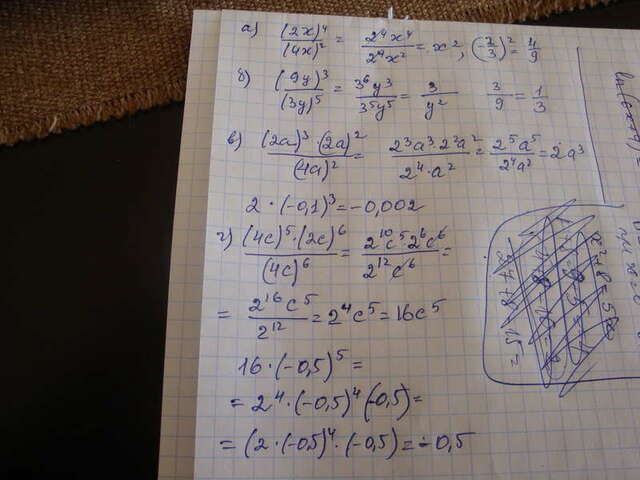 а) (2x)⁴/(4x)² = 2⁴x⁴/2⁴x² = x², (-2/3)² = 4/9
б) (9y)³/(3y)⁵ = 3⁶y³/3⁵y⁵ = 3/y² 3/9 = 1/3
в) (2a)³·(2a)²/(4a)² = 2³a³·2²a²/2⁴·a² = 2⁵a⁵/2⁴a² = 2a³
2·(-0,1)³=-0,002
г) (4c)⁵·(2c)⁶/(4c)⁶ = 2¹⁰c⁵·2⁶c⁶/2¹²c⁶ =
= 2¹⁶c⁵/2¹² = 2⁴c⁵ = 16c⁵
16·(-0,5)⁵ =
= 2⁴·(-0,5)⁴(-0,5) =
= (2·(-0,5)⁴·(-0,5) = -0,5